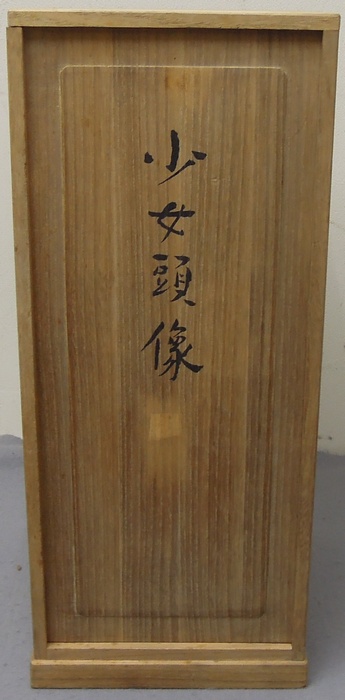 少女頭像